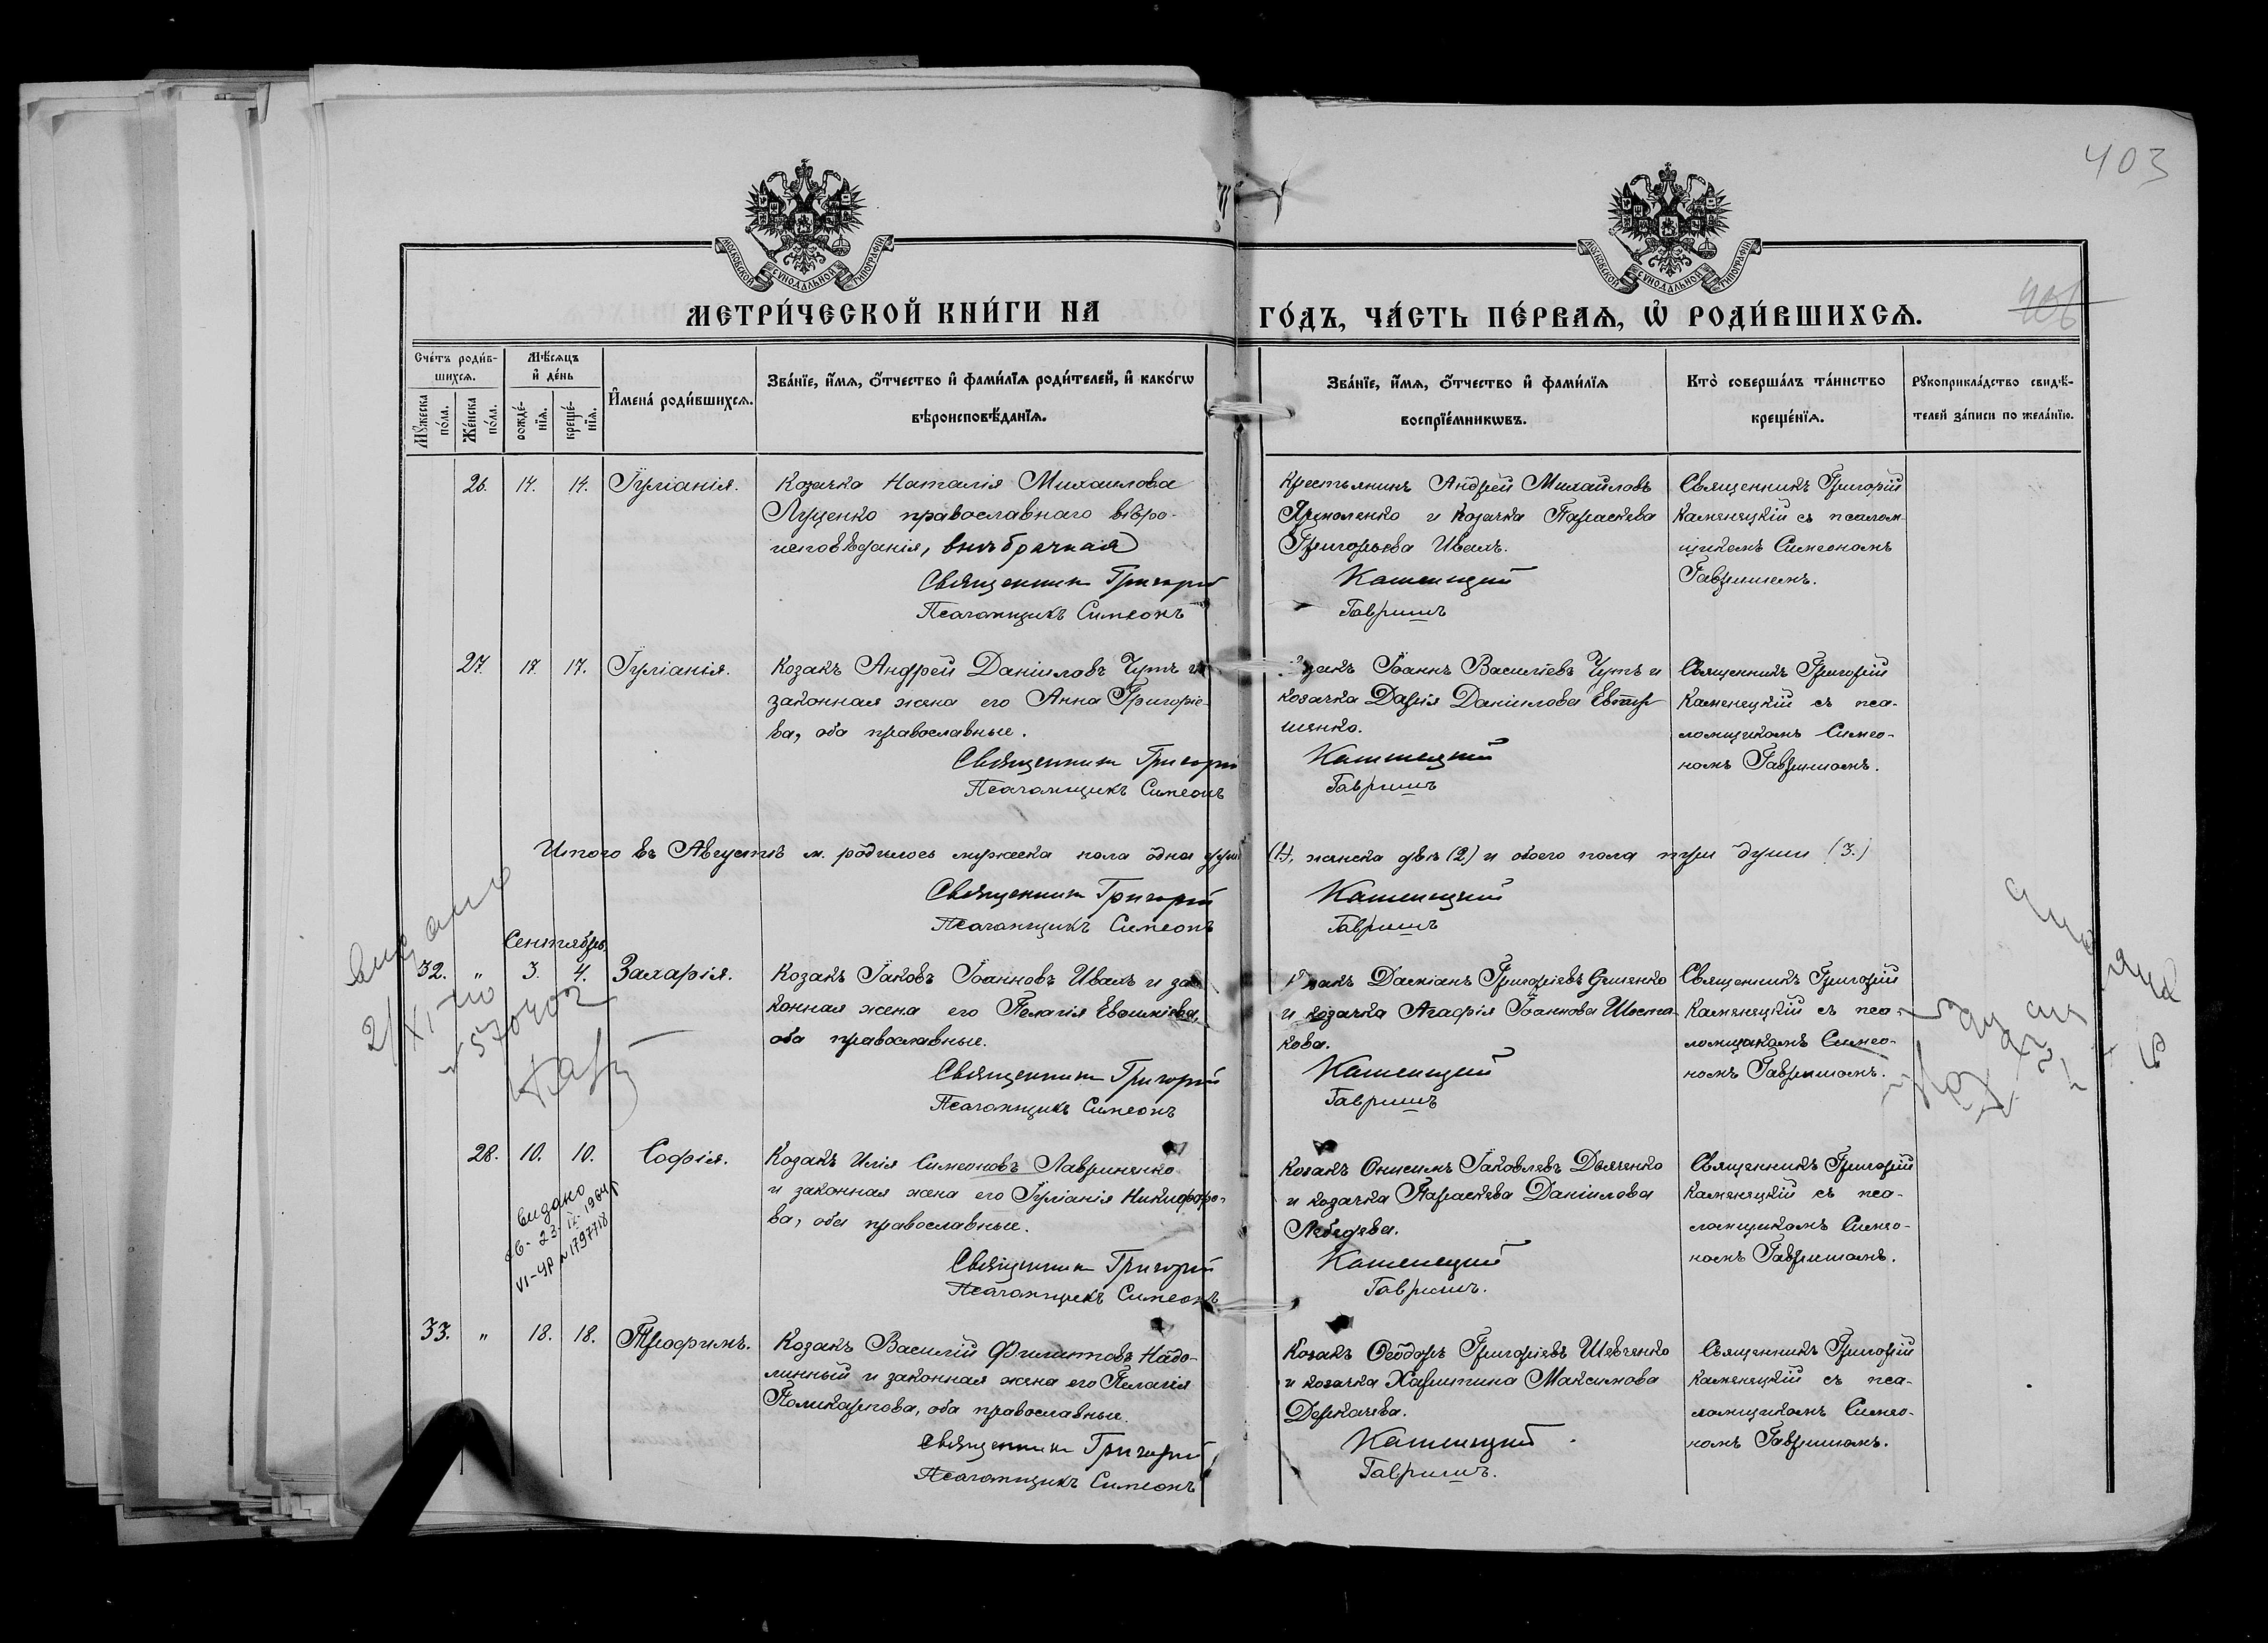 403
МОСКОВСКОЙ СУНОДАЛЬНОЙ ТИПОГРАФІИ
МОСКОВСКОЙ СУНОДАЛЬНОЙ ТИПОГРАФІИ
МЕТРИ́ЧЕСКОЙ КНИ́ГИ НА
ГО́ДЪ, ЧА́СТЬ ПЕ́РВАѦ, Ѡ҆ РОДИ́ВШИХСѦ.
406
Сче́тъ роди́в-
шихсѧ.
Мѣ́сѧцъ
и҆ де́нь
Мꙋ́жеска по́ла.
Же́нска по́ла.
рожде́-
нїѧ.
креще́-
нїѧ.
И҆мена̀ роди́вшихсѧ.
Зва́нїе, и҆́мѧ, ѻ҆́тчество и҆ фами́лїѧ роди́телей, и҆ како́гѡ
вѣроисповѣ́данїѧ.
Зва́нїе, и҆́мѧ, ѻ҆́тчество и҆ фами́лїѧ
воспрїе́мникѡвъ.
Кто̀ соверша́лъ та́инство
креще́нїѧ.
Рꙋкоприкла́дство свидѣ́-
телей за́писи по жела́нїю.
26. 14. 14. Іуліанія.
Козачка Наталія Михаилова
Луценко православнаго вѣро-
исповѣданія, внѣбрачная
Священникъ Григорій
Псаломщикъ Симеонъ
Крестьянинъ Андрей Михайловъ
Ярмоленко и козачка Параскева
Григорьева Ивахъ.
Каменецкій
Гавришъ
Священникъ Григорій
Каменецкій съ псалом-
щикомъ Симеономъ
Гавришемъ.
27. 17. 17. Іуліанія.
Козакъ Андрей Даніиловъ Чутъ и
законная жена его Анна Григоріе-
ва, оба православные.
Священникъ Григорій
Псаломщикъ Симеонъ
Козакъ Іоаннъ Василіевъ Чутъ и
козачка Дарія Даніилова
шенко.
Каменецкій
Гавришъ
Священникъ Григорій
Каменецкій съ пса-
ломщикомъ Симео-
номъ Гавришомъ.
Итого въ Августѣ м. родилось мужеска пола одна душа (1), женска двѣ (2) и обоего пола три души (3.)
Священникъ Григорій
Псаломщикъ Симеонъ
Каменецкій
Гавришъ
Сентябрь
32. „ 3. 4. Захарія.
Козакъ Іаковъ Іоанновъ Ивахъ и за-
конная жена его Пелагія Евфиміева,
оба православные.
Священникъ Григорій
Псаломщикъ Симеонъ
Козакъ Даміанъ Григоріевъ
и козачка Агафія Іоаннова Шоста-
кова.
Каменецкій
Гавришъ
Священникъ Григорій
Каменецкій съ пса-
ломщикомъ Симео-
номъ Гавришомъ.
28. 10. 10. Софія.
Козакъ Илія Симеоновъ Лавриненко
и законная жена его Іуліанія Никифоро-
ва, оба православные.
Священникъ Григорій
Псаломщикъ Симеонъ
Козакъ Онисимъ Іаковлевъ Дьяченко
и козачка Параскева Даніилова
Лебедева.
Каменецкій
Гавришъ.
Священникъ Григорій
Каменецкій съ пса-
ломщикомъ Симео-
номъ Гавришомъ.
видано
св. 23.IX-1964 р
VI-УР №179778
33. „ 18. 18. Трофимъ.
Козакъ Василій Филиповъ Надо-
линный и законная жена его Пелагія
Поликарпова, оба православные.
Священникъ Григорій
Псаломщикъ Симеонъ
Козакъ Ѳеодоръ Григоріевъ Шевченко
и козачка Харитина Максимова
Деркачева.
Каменецкій
Гавришъ.
Священникъ Григорій
Каменецкій съ пса-
ломщикомъ Симео-
номъ Гавришомъ.